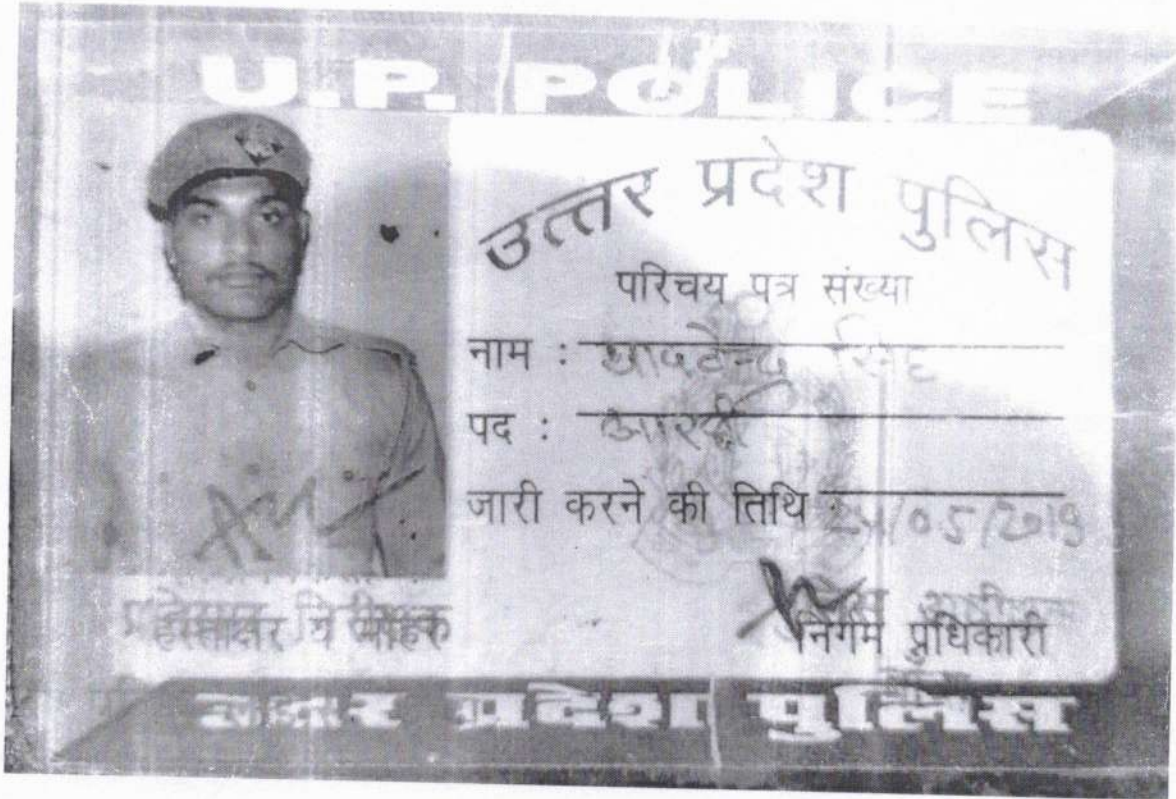 U.P. POLICE
उत्तर प्रदेश पुलिस
परिचय पत्र संख्या
नाम : सिंह
पद : आरक्षी
जारी करने की तिथि : /05/2019
हस्ताक्षर व मोहर
निर्गम प्रधिकारी
उत्तर प्रदेश पुलिस